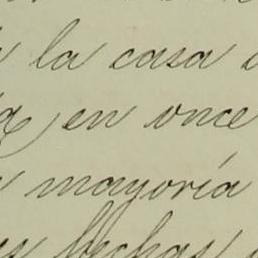 la casa
en once
mayoría
hechas